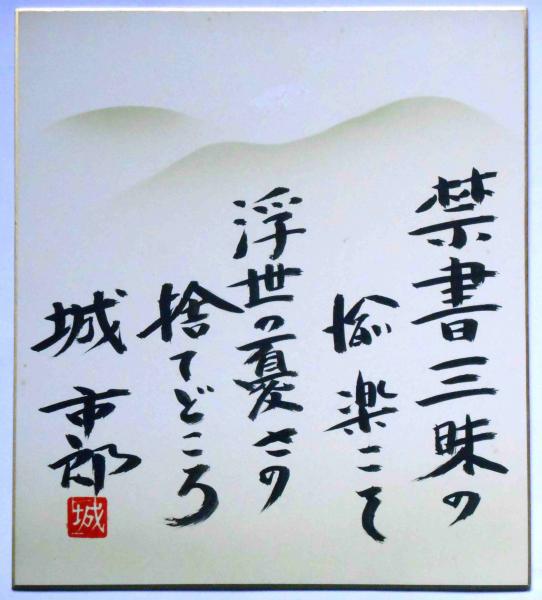 禁書三昧の
愉楽こそ
浮世の憂さの
捨てどころ
城市郎
城